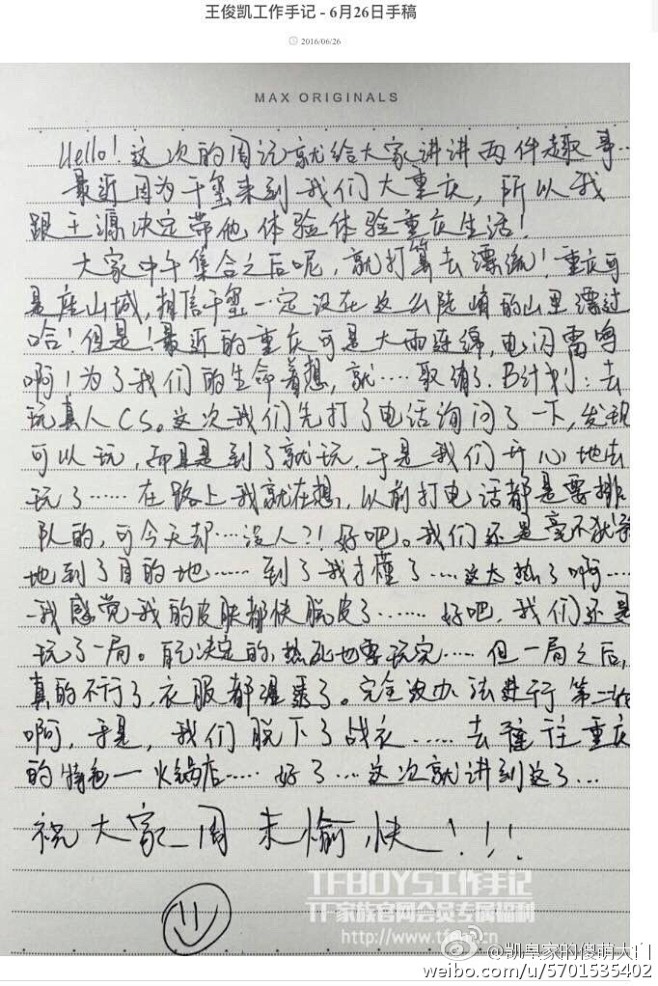 王俊凯工作手记 - 6月26日手稿
2016/06/26
MAX ORIGINALS
Hello！这次的周记就给大家讲讲两件趣事…
最近因为千玺来到我们大重庆，所以我
跟王源决定带他体验体验重庆生活！
大家中午集合之后呢，就打算去漂流！重庆可
是座山城，相信千玺一定没在这么陡峭的山里漂过
哈！但是！最近的重庆可是大雨连绵，电闪雷鸣
啊！为了我们的生命着想，就……取消了。B计划：去
玩真人CS。这次我们先打了电话询问了一下，发现
可以玩，而且是到了就玩，于是我们开心地去
玩了……在路上我就在想，以前打电话都是要排
队的，可今天却…没人？！好吧。我们还是毫不犹豫
地到了目的地……到了我才懂了……这太热了啊……
我感觉我的皮肤都快脱皮了……好吧，我们还是
玩了一局。自己决定的，热死也要玩完……但一局之后，
真的不行了，衣服都湿透了。完全没办法进行第二轮
啊，于是，我们脱下了战衣……去往重庆
的特色—火锅店……好了…这次就讲到这了…
祝大家周末愉快！！！
TFBOYS工作手记
TF家族官网会员专属福利
http://www.tfa.cn
@凯皇家的傻萌大白
weibo.com/u/5701535402